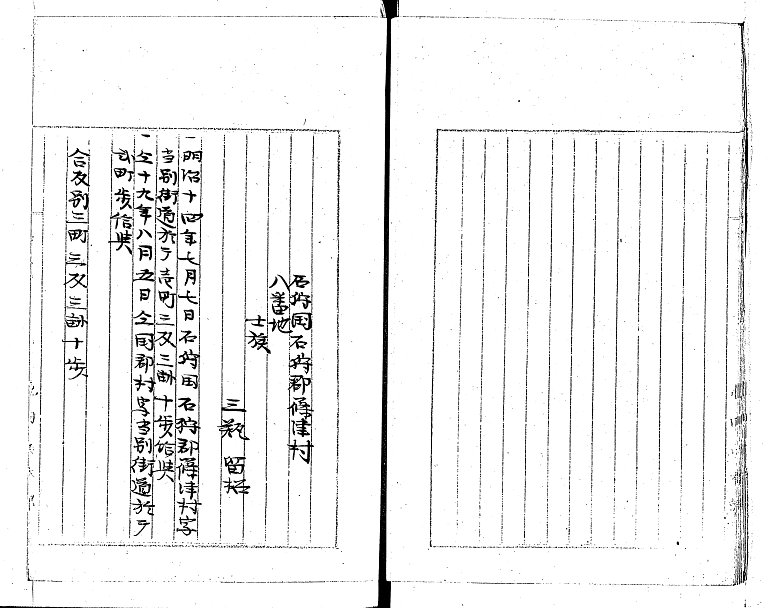 石狩国石狩郡篠津村
八番地
士族
三瓶 留
一明治十四年七月七日石狩国石狩郡篠津村字
当別街道於テ壱町三反三畝十歩給与
一仝十九年八月五日仝国郡村字当別街道於テ
弐町歩給与
合反別三町三反三畝十歩